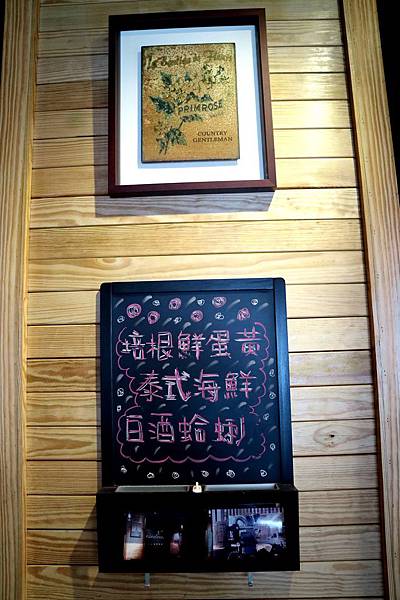 PRIMROSE
COUNTRY
GENTLEMAN
培根鮮蛋黃
泰式海鮮
白酒蛤蜊